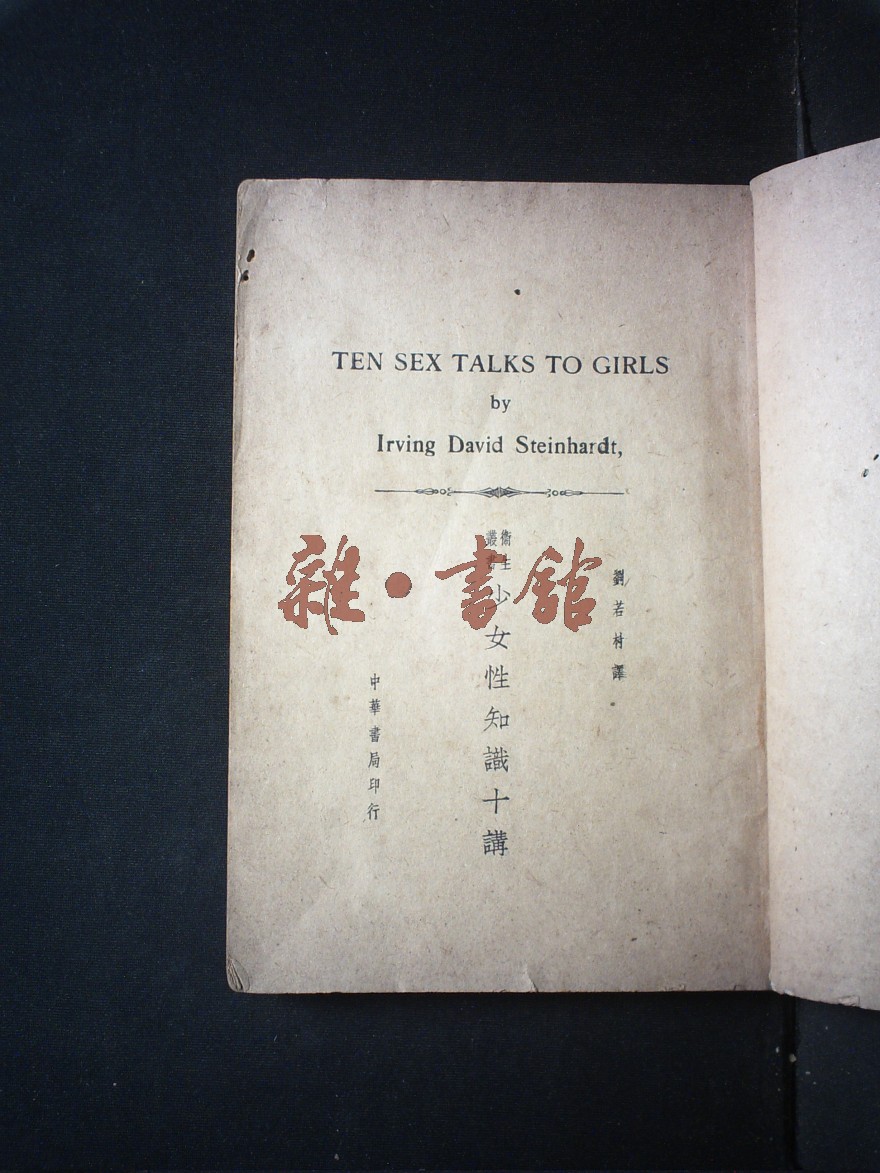 TEN SEX TALKS TO GIRLS
by
Irving David Steinhardt,
劉若村譯
衞生叢書
少女性知識十講
中華書局印行
雜·書館